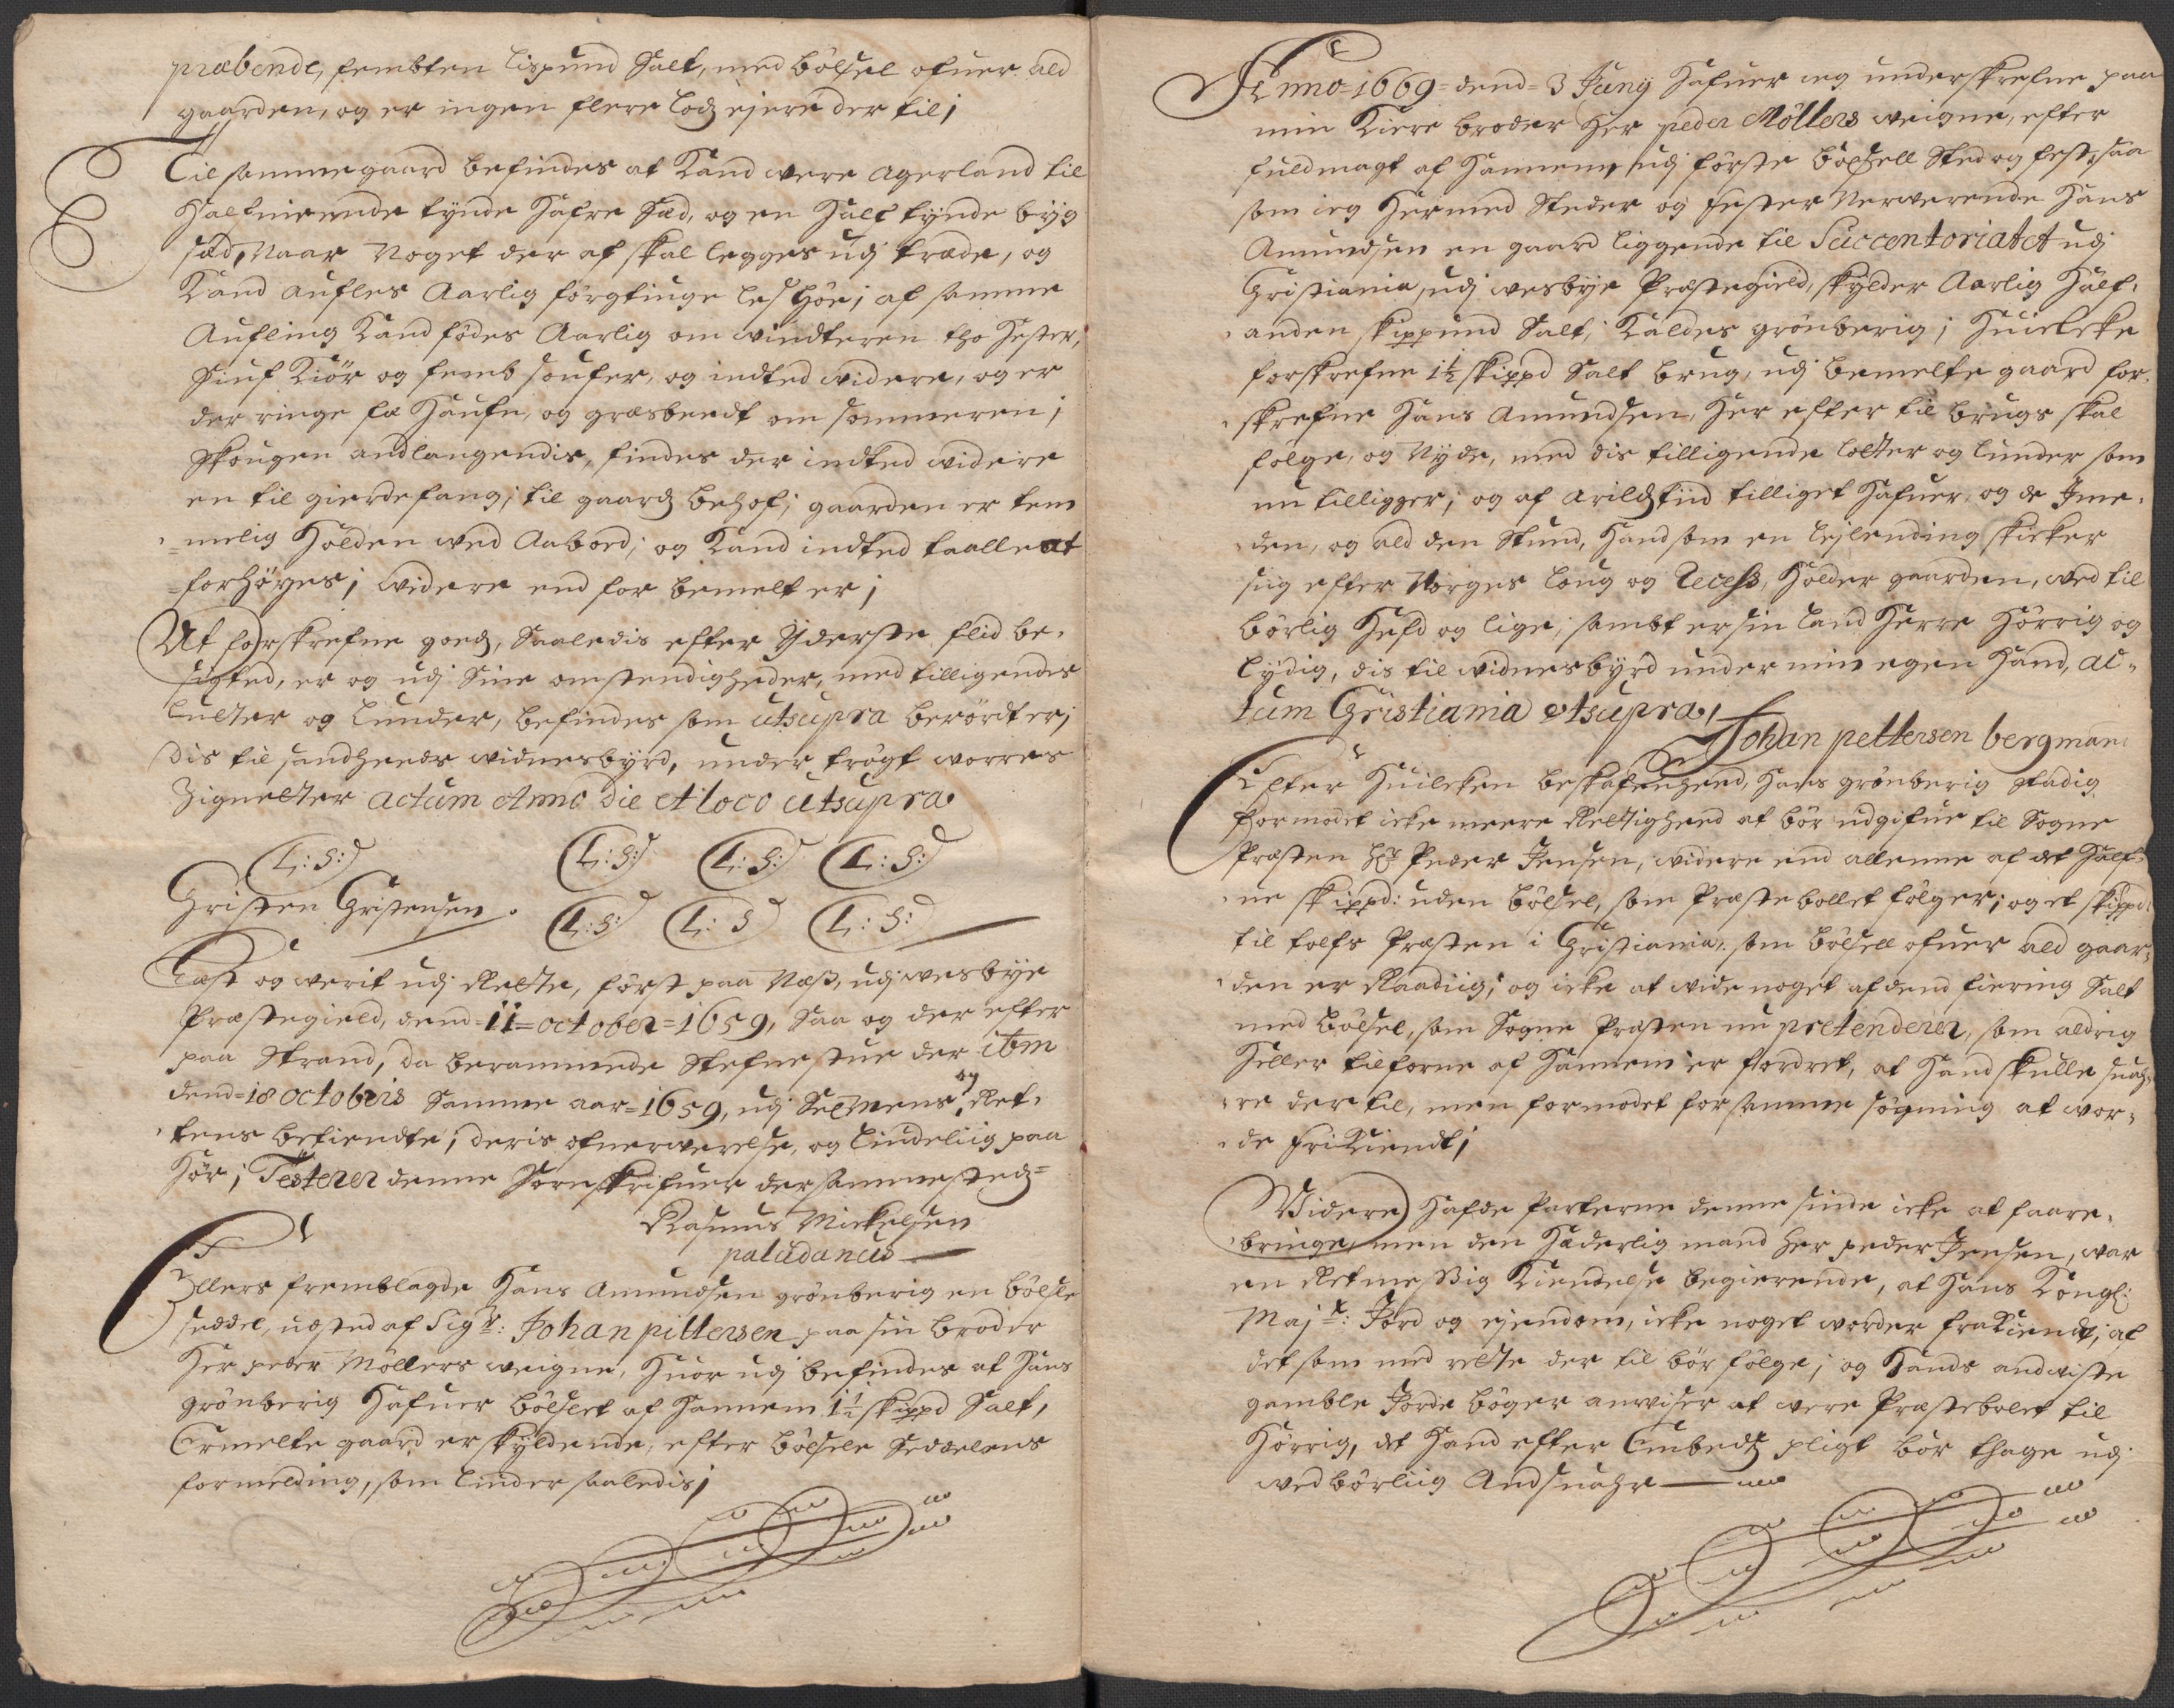 præbende, fembten lispund Salt, med böÿsel ofuer ald
gaarden, og er ingen flere lodz ejere der til;
Til samme gaard befindes at Kand were agerland til
Halfniende tynde Hafre Sæd, og en Half tynde byg
sæd, Naar Noget der af skal legges udj træde, og
Kand aufles Aarlig förgtiuge les Höe; af samme
Aufling Kand födes Aarlig om windteren tho Hester,
Siuf Kiör og femb soufer, og indted widere, og er
der ringe fæ Haufn, og græsbendt om sommeren;
Skougen andlangendis, findes der indted widere
en til gierdefang; til gaardz behof; gaarden er tem
melig Holden wed Aaboed; og Kand indted taalle at
forhöyes; widere end for bemelt er;
At forskrefne goedz, Saaledis efter Yderste flid be-
sigted, er og udj Sine omstendigheder, med tilligendes
lutter og lunder, befindes som utsupra berördt er;
dis til sandheeds widnesbyrd, under trögt worres
Zignetter actum Anno die et loco utsupra
L: S: L: S: L: S: L: S:
Christen Christensen. L: S: L: S L: S:
Læst og werit udj Rette, först paa Næss, udj wesbÿe
Præstegield, dend 11 october 1659, Saa og der efter
paa Strand, da berammede Stefnestue der itm
dend 18 octobris Samme aar 1659, udj og Ret-
tens betiendte; deris ofuerwerelse, og liudeliig paa
Hör; Testerer denne Sorenskrifuer dersammestedz
Rasmus Mickelsen
paludanus
Ellers fremblagde Hans Amundsen grönberig en böÿsle
seddel, udsted af Sigr: Johan pittersen paa sin broder
Her peder Möllers weigne, Huor udj befindes at Hans
grönberig Hafuer böÿslet af Hannem 1½ skippd Salt,
Ermelte gaard er skyldende, efter böÿsele Seddelens
formelding, som liuder saaledis;
Anno 1669 dend 3 Juny Hafuer ieg underskrefne paa
min Kiere broder Her peder Möllers weigne, efter
fuldmagt af Hannem, udj förste böÿsell Sted og fest, saa
som ieg Hermed Steder og fester Nerwerende Hans
Amundsen en gaard liggende til Succentoriatet udj
Christiania, udj wesbÿe Præstegield, skylder Aarlig Half-
anden skippund Salt; Kaldes grönberig; Huilcke
forskrefne 1½ skippd Salt brug, udj bemelte gaard for-
skrefne Hans Amundsen, Her efter til brugs skal
fölge, og Nyde, med dis tilligende lotter og lunder som
nu tilligger; og af arildztiid tilliget Hafuer, og de Ime-
den, og ald den Stund, Hand som en lejlending skicker
siig efter Norges loug og Recess, Holder gaarden, wed til
börlig Hefd og lige; sambt er sin land Herre Hörrig og
lÿdig, dis til widnesbÿrd under min egen Hand, ac-
tum Christiania utsupra,
Johan pettersen bergman
Efter Huilcken beskafenheed, Hans grönberig stadig
formodet icke meere Rettigheed at bör udgifue til Sogne
Præsten Hr Peder Jensen, widere end allenne af det Half-
ne skippd: uden böÿsel, som Præstebollet fölger; og et skippd
til tolfr Præsten i Christiania, som böÿsell ofuer ald gaar-
den er Raadiig; og icke at wide noget af dend fiering Salt
med böÿsel, som Sogne Præsten nu pretenderer, som aldrig
Heller tilforne af Hannem er fordret, at Hand skulle sua-
re der til, men formodet for samme sögning at wor-
de friKiendt;
Widere Hafde Parterne denne sinde icke at faare-
bringe, men den Hæderlig mand Her peder Jensen, war
en Retmessig Kiendelse begierende, at Hans Kongl:
Majt: Jord og ejendom, icke noget worder fraKiendt; af
det som med rette der til bör fölge; og Hands andwiste
gamble Jorde böger anwiser at were Præstebolet til
Hörrig, det Hand efter Embedz pligt bör thage udj
wedbörliig Andsuahr